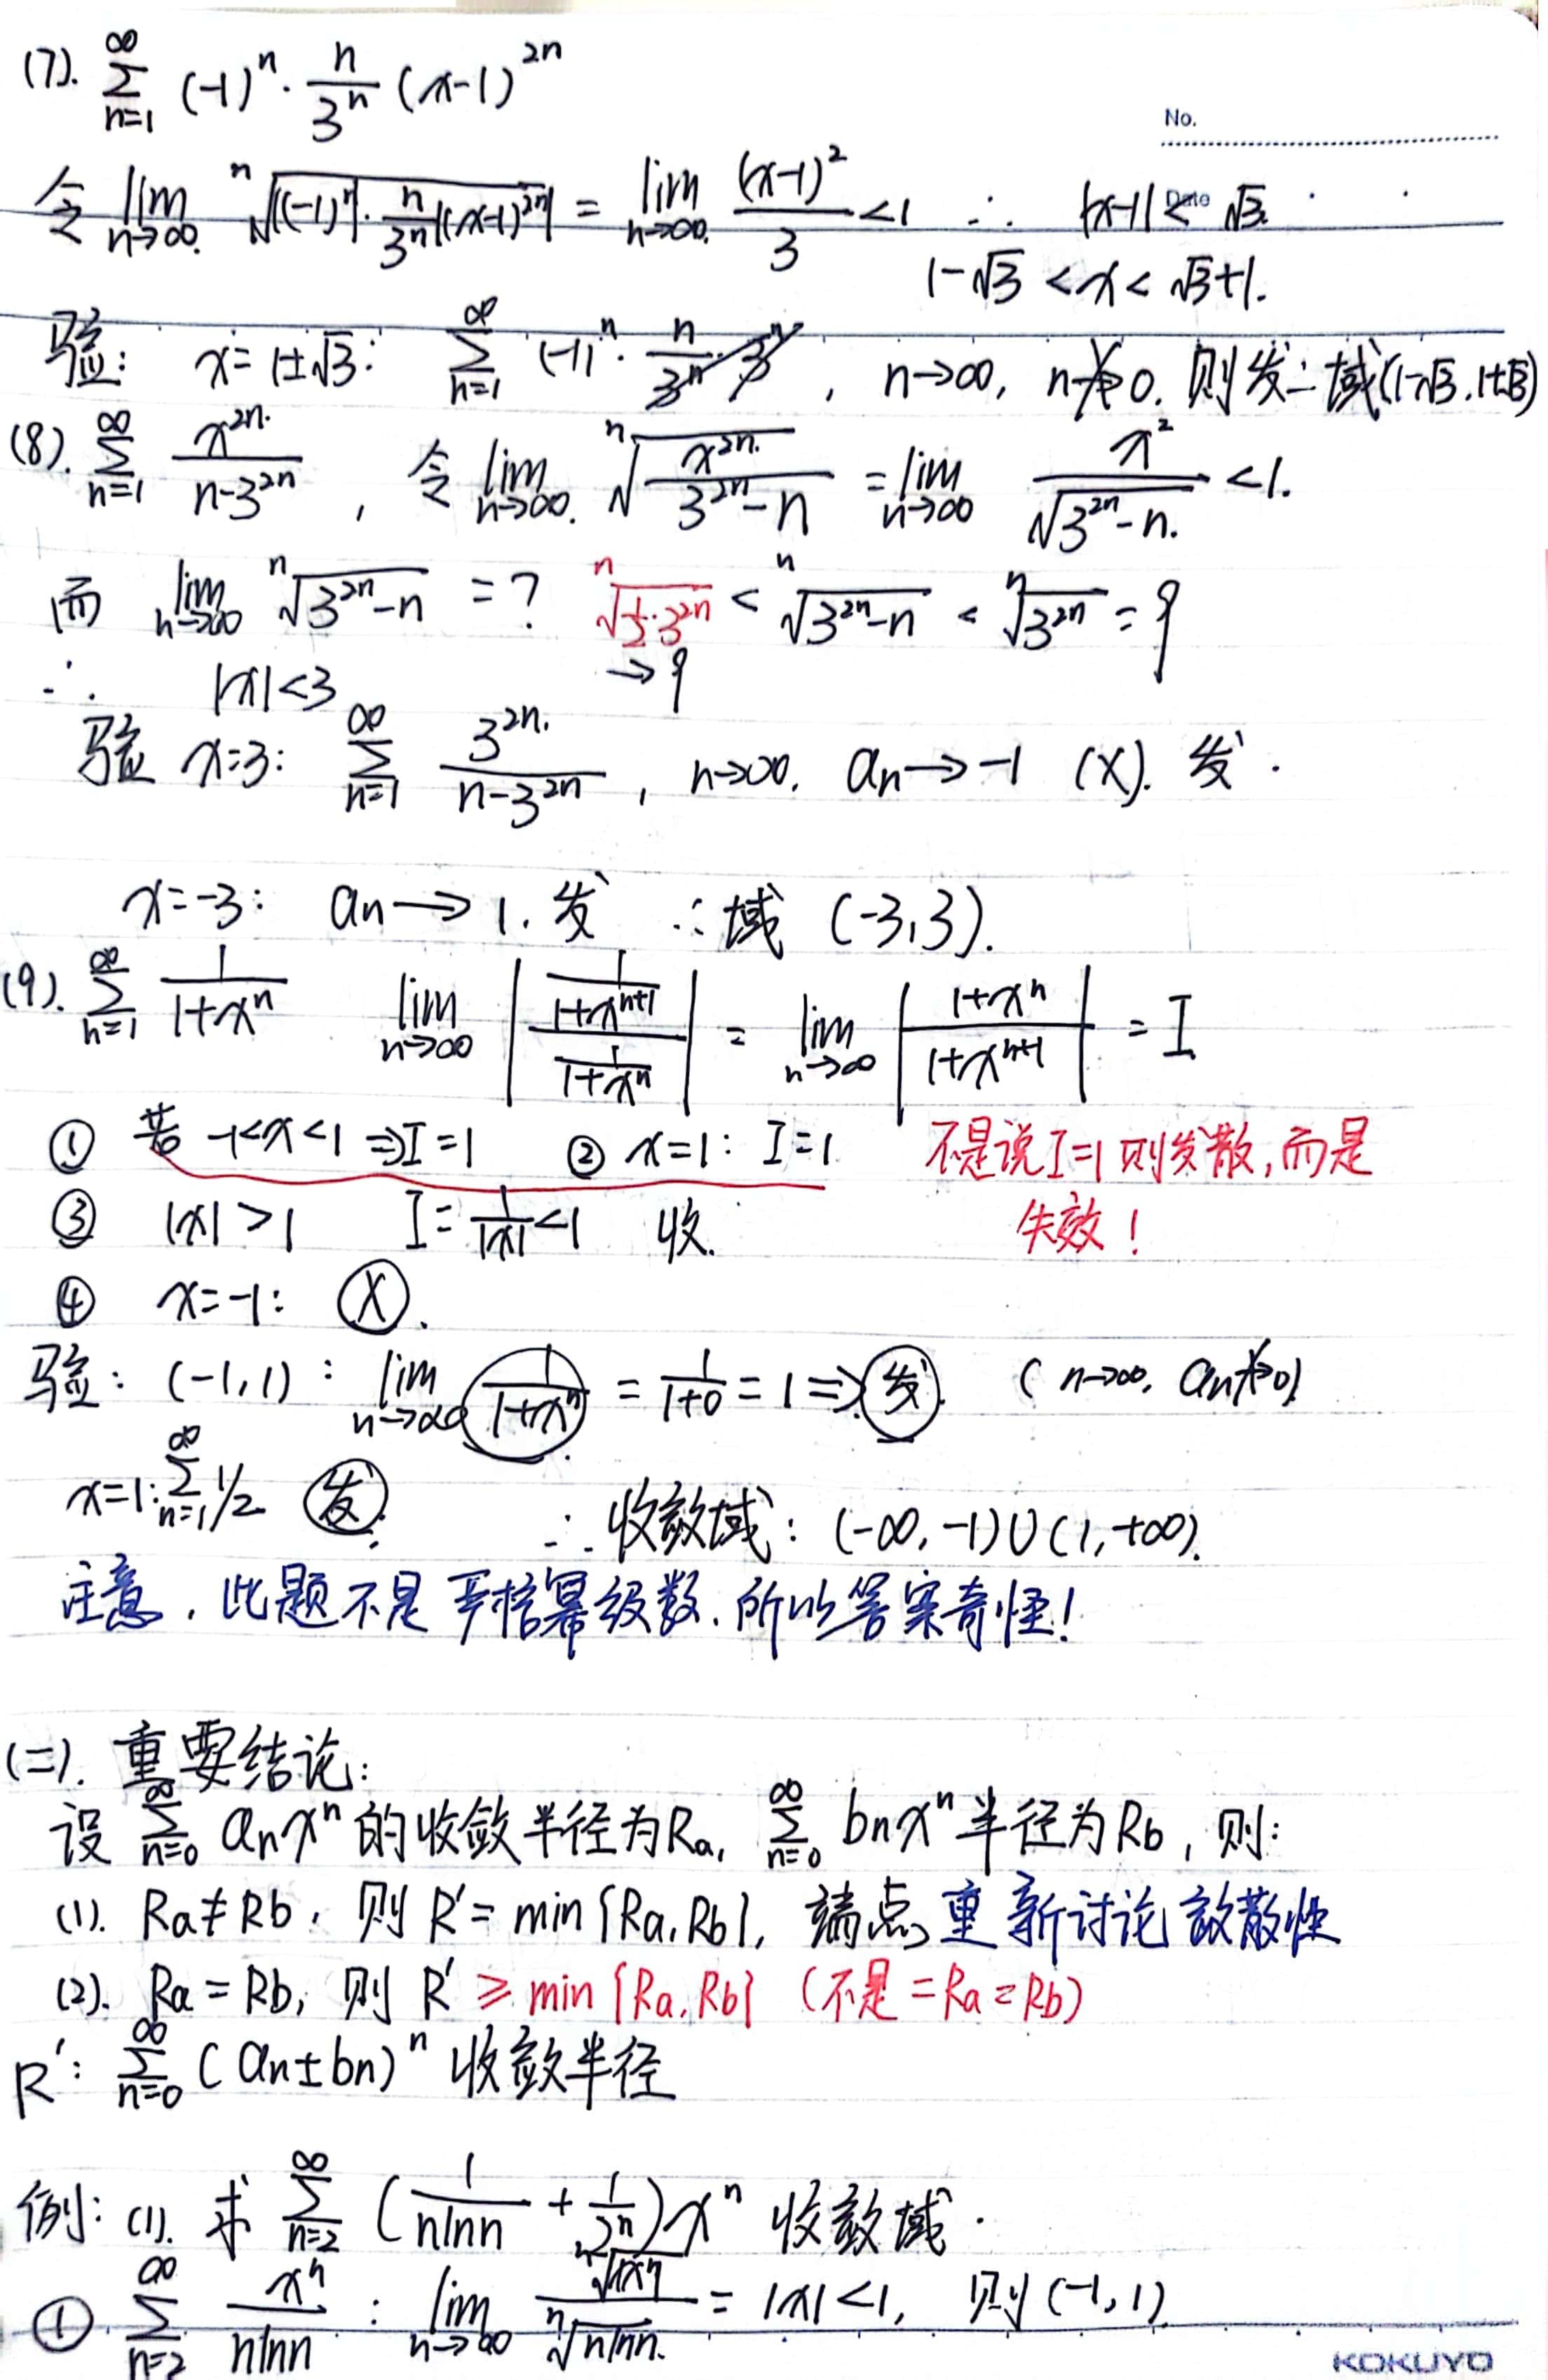 (7). ∞∑n=1 (-1)^n · n/3^n (x-1)^2n
No.
令 lim n→∞. n√(|(-1)^n| · n/3^n |(x-1)^2n|) = lim n→∞. (x-1)^2/3 <1 ∴ |x-1| < √3.
Date
1-√3 < x < √3+1.
验: x=1±√3: ∞∑n=1 (-1)^n · n/3^n · 3^n , n→∞, n↛0. 则发∴域(1-√3, 1+√3)
(8). ∞∑n=1 x^2n/(n-3^2n) , 令 lim n→∞. n√(x^2n/(3^2n-n)) = lim n→∞ x^2/√(3^2n-n.) <1.
而 lim n→∞ n√(3^2n-n) = ? n√(1/2·3^2n) < n√(3^2n-n) < n√(3^2n) = 9
→9
∴ |x|<3
验 x=3: ∞∑n=1 3^2n/(n-3^2n) , n→∞, an→-1 (X). 发.
x=-3: an→1. 发 ∴域 (-3,3).
(9). ∞∑n=1 1/(1+x^n) lim n→∞ |(1/(1+x^(n+1)))/(1/(1+x^n))| = lim n→∞ |(1+x^n)/(1+x^(n+1))| = I
① 若 -1<x<1 ⇒I=1 ② x=1: I=1 不是说I=1则发散,而是
③ |x|>1 I=1/|x|<1 收. 失效!
④ x=-1: X.
验: (-1,1) : lim n→∞ 1/(1+x^n) = 1/(1+0) = 1 ⇒ 发. ( n→∞, an↛0)
x=1: ∞∑n=1 1/2 发. ∴收敛域: (-∞,-1)∪(1,+∞).
注意,此题不是严格幂级数,所以答案奇怪!
(二). 重要结论:
设 ∞∑n=0 anx^n 的收敛半径为Ra, ∞∑n=0 bnx^n 半径为Rb, 则:
(1). Ra≠Rb, 则 R'= min{Ra,Rb}, 端点重新讨论敛散性
(2). Ra=Rb, 则 R' ≥ min{Ra,Rb} (不是=Ra=Rb)
R': ∞∑n=0 (an±bn)^n 收敛半径
例: (1). 求 ∞∑n=2 (1/(nlnn) + 1/2^n)x^n 收敛域.
① ∞∑n=2 x^n/(nlnn) : lim n→∞ n√|x^n|/n√(nlnn.) = |x|<1, 则(-1,1)
KOKUYO